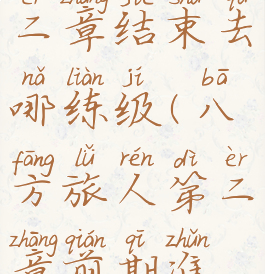 二章结束去
nǎ liàn jí bā
哪练级(八
fāng lǚ rén dì èr
方旅人第二
zhāng qián qī zhǔn
章前期准